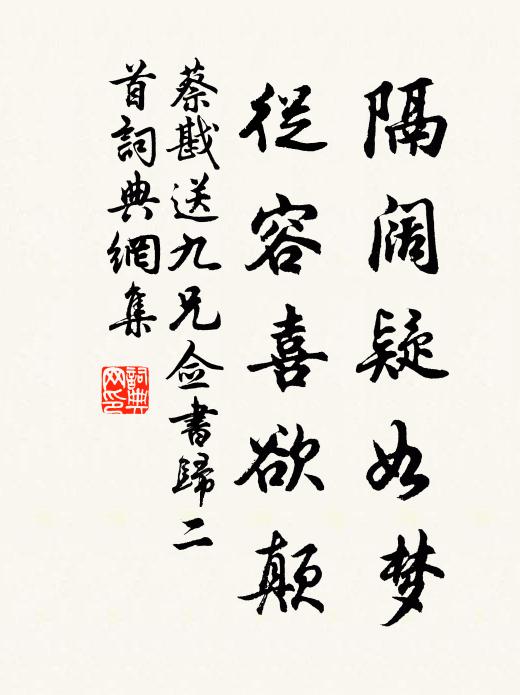 隔阔疑如梦
従容喜欲颠
蔡戡送九兄佥書歸二
首詞典網集
詞典网印